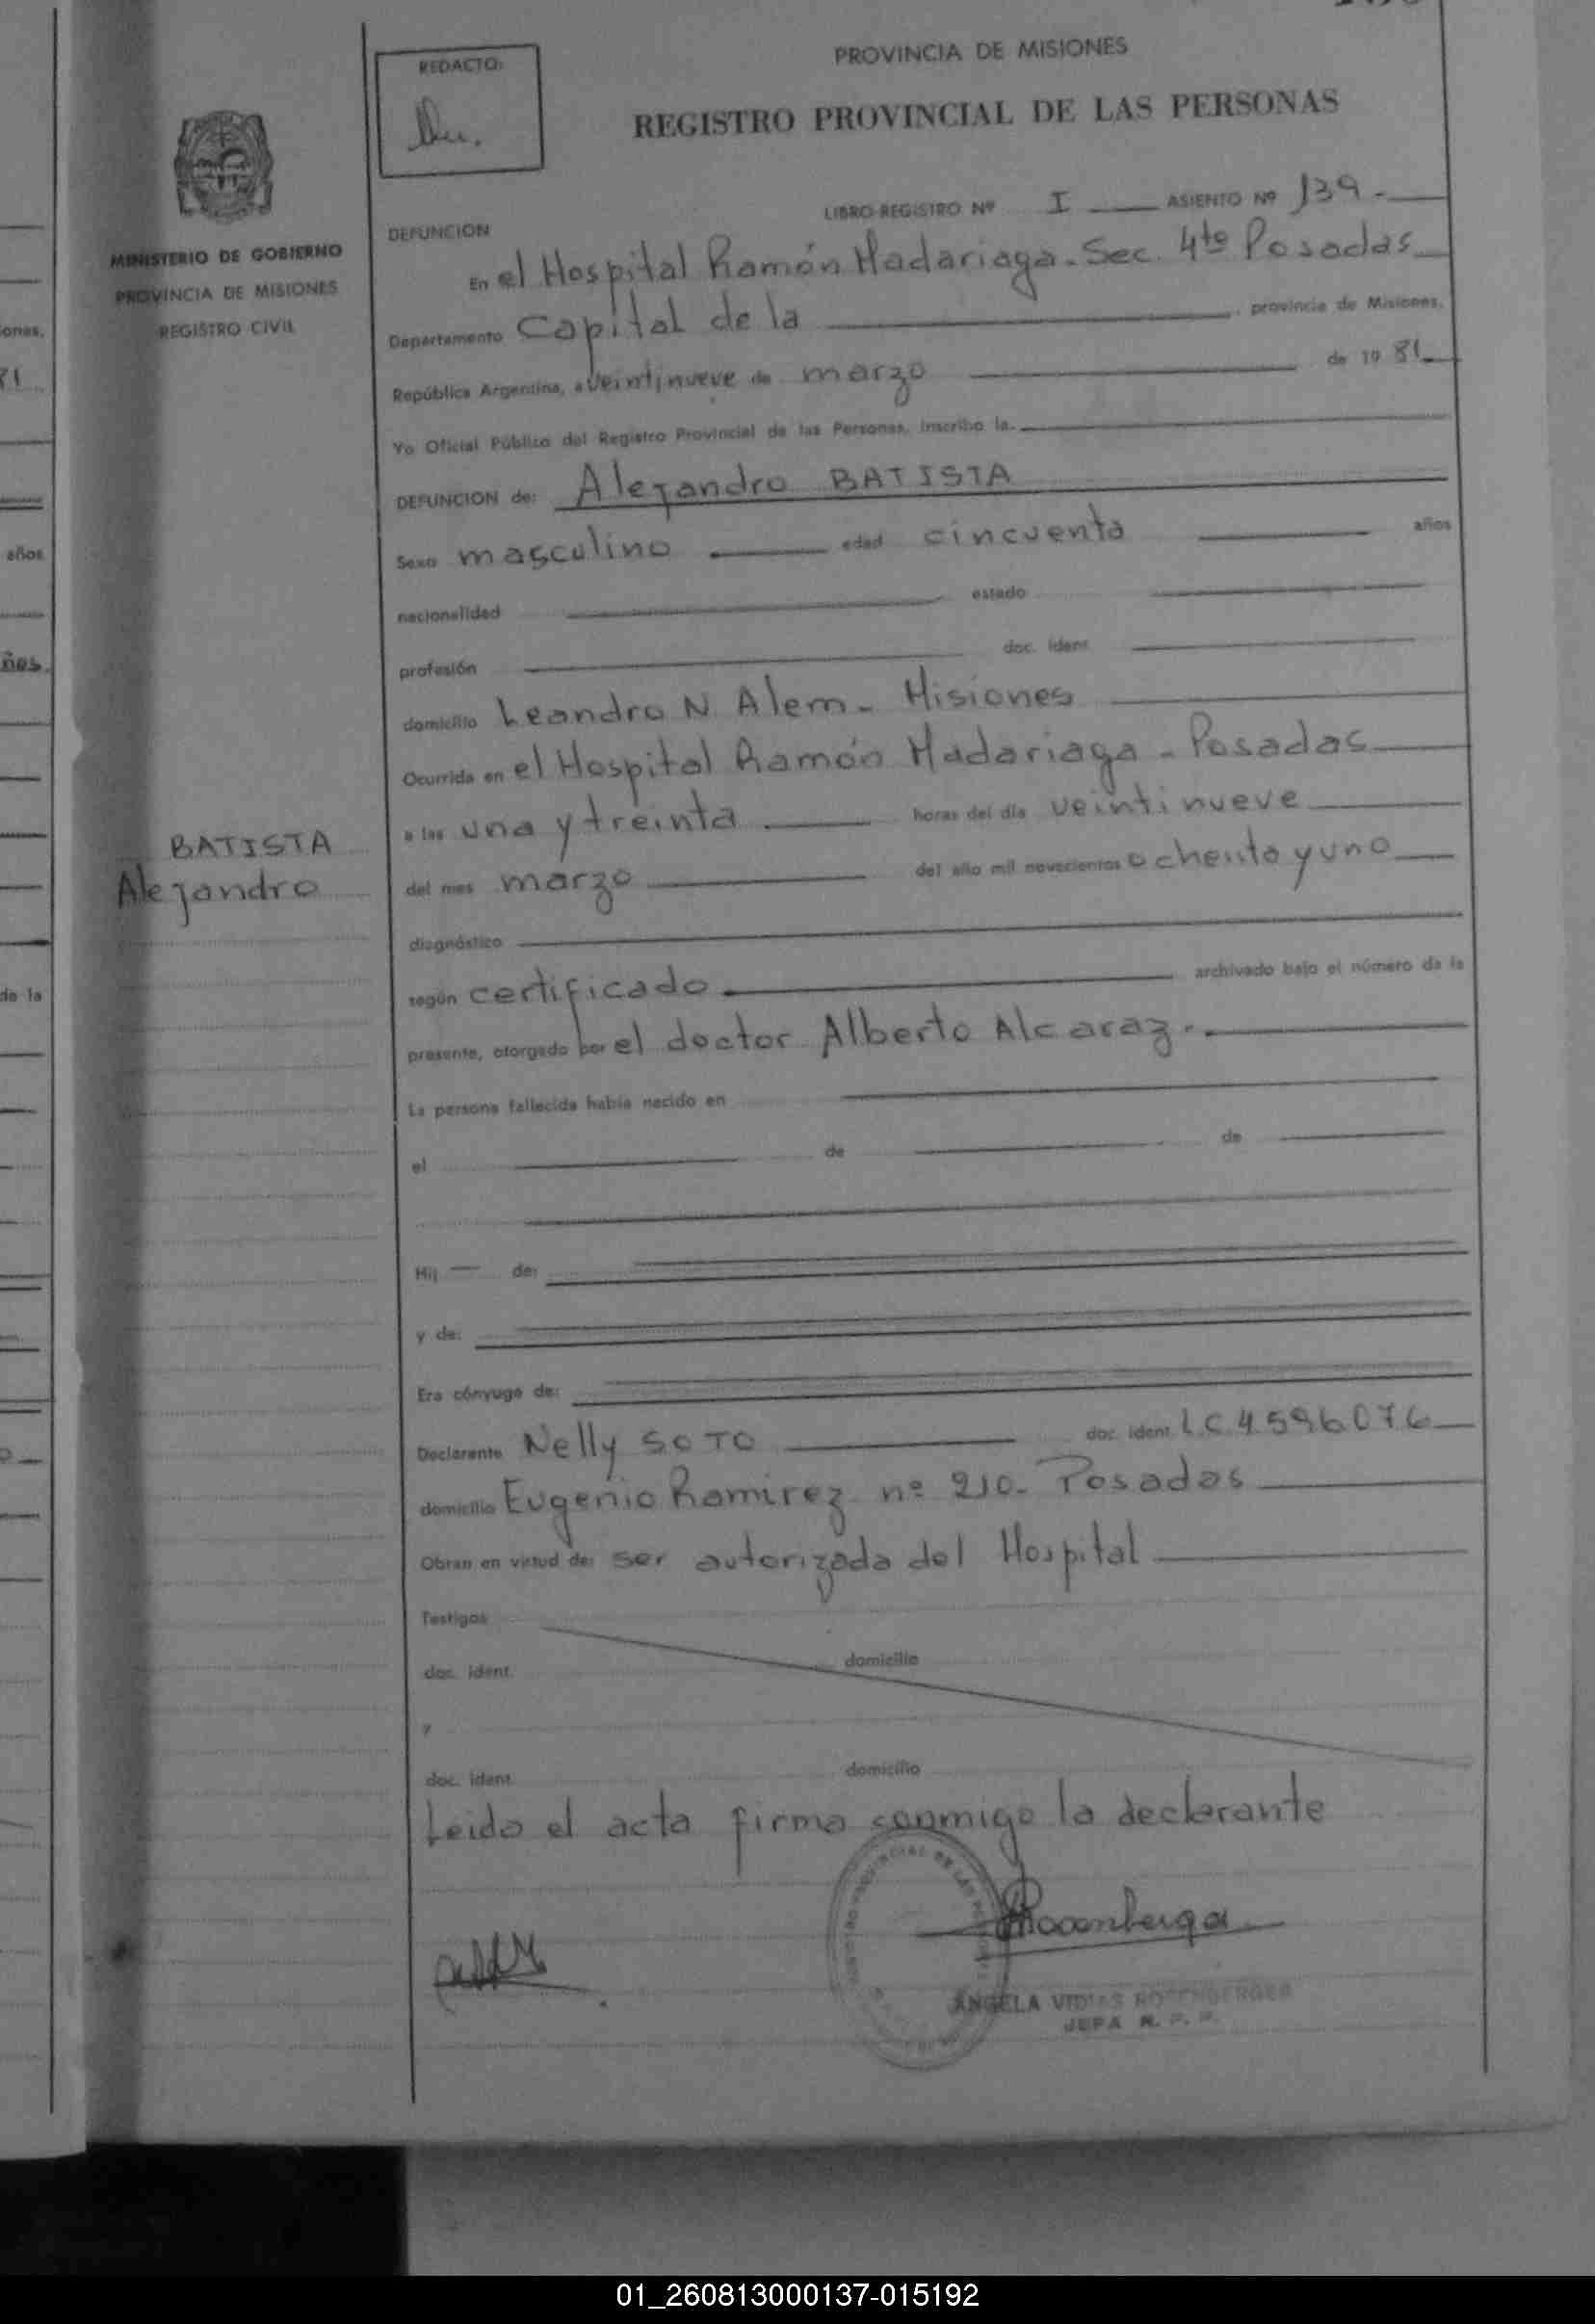 REDACTO:
PROVINCIA DE MISIONES
REGISTRO PROVINCIAL DE LAS PERSONAS
MINISTERIO DE GOBIERNO
PROVINCIA DE MISIONES
REGISTRO CIVIL
LIBRO-REGISTRO Nº I ASIENTO Nº 139.-
DEFUNCION
En el Hospital Ramón Madariaga - Sec. 4tº Posadas
Departamento Capital de la , provincia de Misiones,
República Argentina, a veintinueve de marzo de 19 81
Yo Oficial Público del Registro Provincial de las Personas, inscribo la
DEFUNCION de: Alejandro BATISTA
Sexo masculino edad cincuenta años
nacionalidad estado
profesión doc. ident.
domicilio Leandro N. Alem - Misiones
Ocurrida en el Hospital Ramón Madariaga - Posadas
a las una y treinta horas del día veintinueve
BATISTA
Alejandro
del mes marzo del año mil novecientos ochenta y uno
diagnóstico
según certificado archivado bajo el número de la
presente, otorgado por el doctor Alberto Alcaraz.
La persona fallecida había nacido en
el de de
Hij — de:
y de:
Era cónyuge de:
Declarante Nelly SOTO doc. ident. L.C. 4.596.076
domicilio Eugenio Ramirez nº 210 - Posadas
Obran en virtud de: ser autorizada del Hospital
Testigos
doc. ident. domicilio
y
doc. ident. domicilio
Leida el acta firma conmigo la declarante
ANGELA ROSENBERGER
JEFA R. P. P.
ones,
81
años
ños
de la
01_260813000137-015192